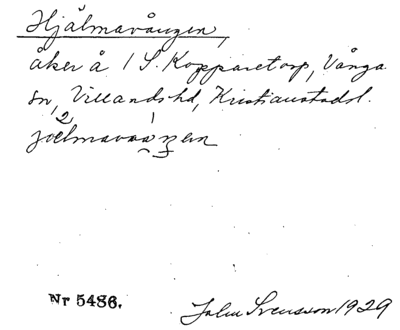 Hjälmavången,
åker å 1 S. Kopparetorp, Vånga
sn, Villands hd, Kristianstads l.
Nr 5486.
John Svensson 1929